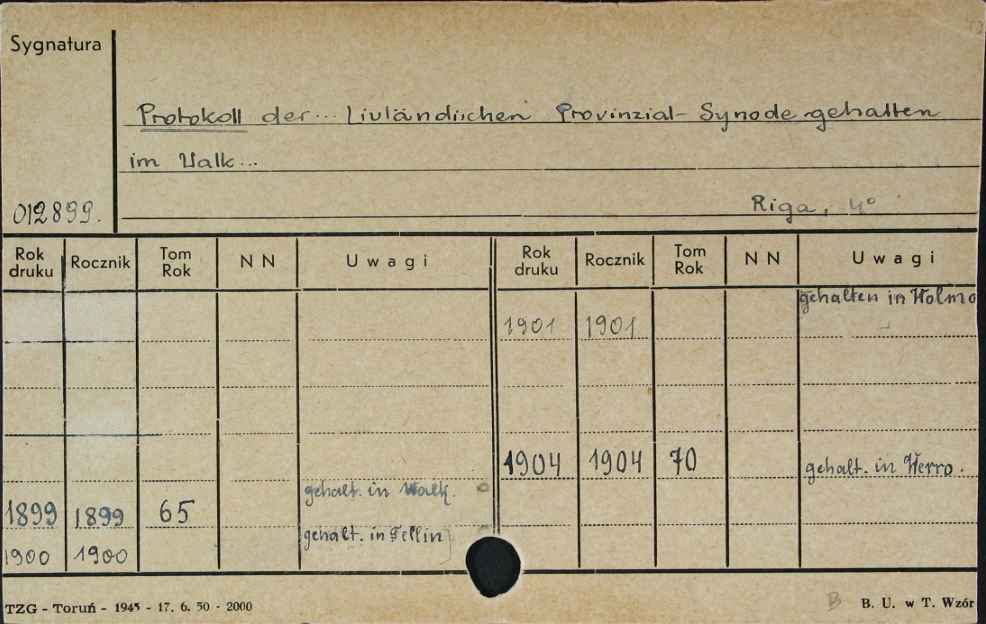 Sygnatura
Protokoll der... Livländischen Provinzial-Synode gehalten
im Walk...
012899.
Riga, 4°
Rok druku Rocznik Tom Rok NN Uwagi Rok druku Rocznik Tom Rok NN Uwagi
gehalten in Wolma
1901 1901
1904 1904 70 gehalt. in Werro.
gehalt. in Walk.
1899 1899 65
gehalt. in Fellin
1900 1900
TZG - Toruń - 1945 - 17. 6. 50 - 2000
B B. U. w T. Wzór